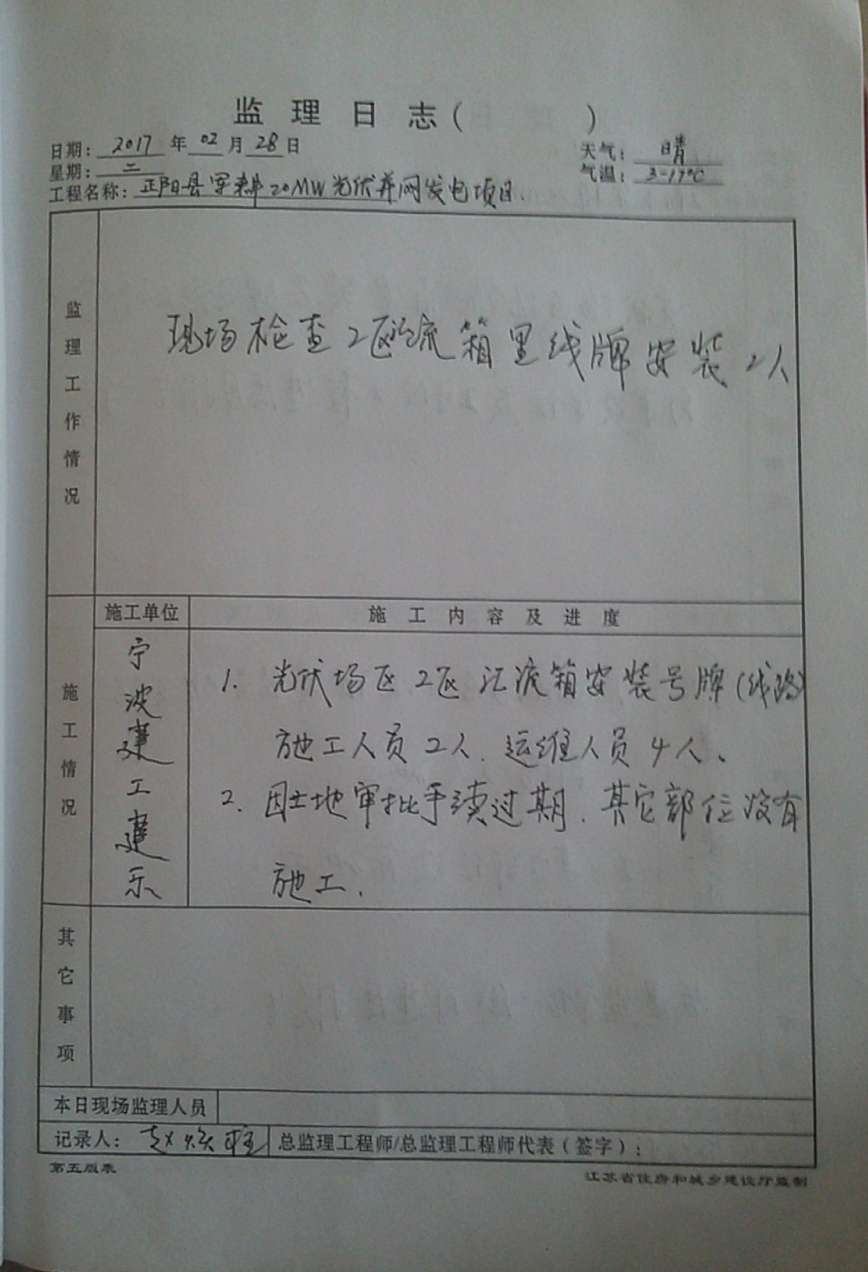 监理日志( )
日期: 2017 年 02 月 28 日 天气: 晴
星期: 二 气温: 3-17℃
工程名称: 正阳县 20MW光伏并网发电项目.
监理工作情况
现场检查2区汇流箱里线牌安装2人
施工情况
施工单位 施工内容及进度
宁波建工建乐
1. 光伏场区2区汇流箱安装号牌(线路)
施工人员2人. 运维人员4人、
2. 因土地审批手续过期. 其它部位没有
施工.
其它事项
本日现场监理人员
记录人: 赵焕 总监理工程师/总监理工程师代表(签字):
第五版表 江苏省住房和城乡建设厅监制